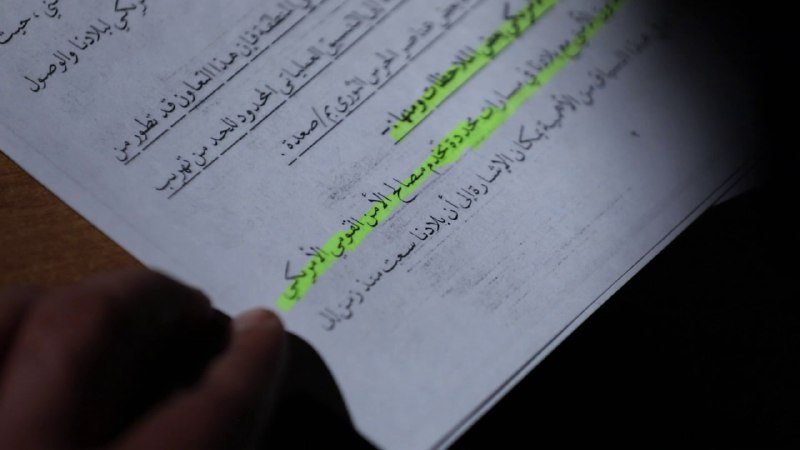 ني ، حيث
ريكي لبلادنا والوصول
المنطقة فإن هذا التعاون قد تطور من
إلى التنسيق العملياتي المحدود للحد من تهريب
بعض عناصر الحرس الثوري بم/صعدة .
بعض الملاحظات ومنها:-
بلادنا في مسارات محددة تخدم مصالح الأمن القومي الأمريكي
هذا السياق من الأهمية بمكان الإشارة إلى أن بلادنا سعت منذ زمن إلى